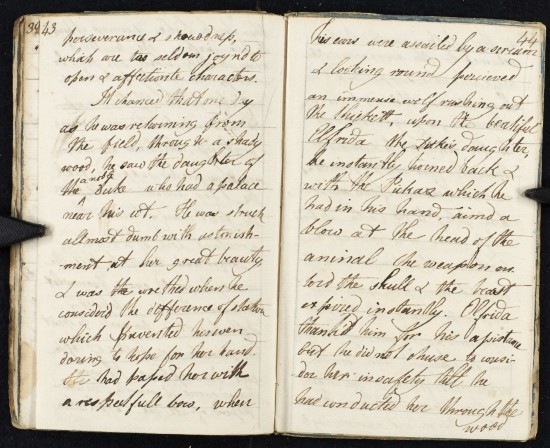 39 43
perseverance & shrewdness,
which are too seldom joynd to
open & affectionte characters.
It chanced that one dy
as he was returning from
the field, through a shady
wood, he saw the daughter of
the Duke who had a palace
near his cot. He was struck
allmost dumb with astonish-
-ment at her great beauty
& was the wretched when he
considerd the difference of station
which prevented his even
daring to hope for her hand.
He had passed her with
a respectfull bow, when
44
his ears were assailed by a scream
& looking round perceived
an immense wolf rushing out
the thickett, upon the beatiful
Elfrida the Duke's daughter,
he instantly turned back &
with the Pickax which he
had in his hand, aimd a
blow at the head of the
animal the weapon en-
terd the skull & the beast
expired instantly. Elfrida
thankd him for his assistane
but he did not chuse to consi-
der her in safety till he
had conducted her through the
wood